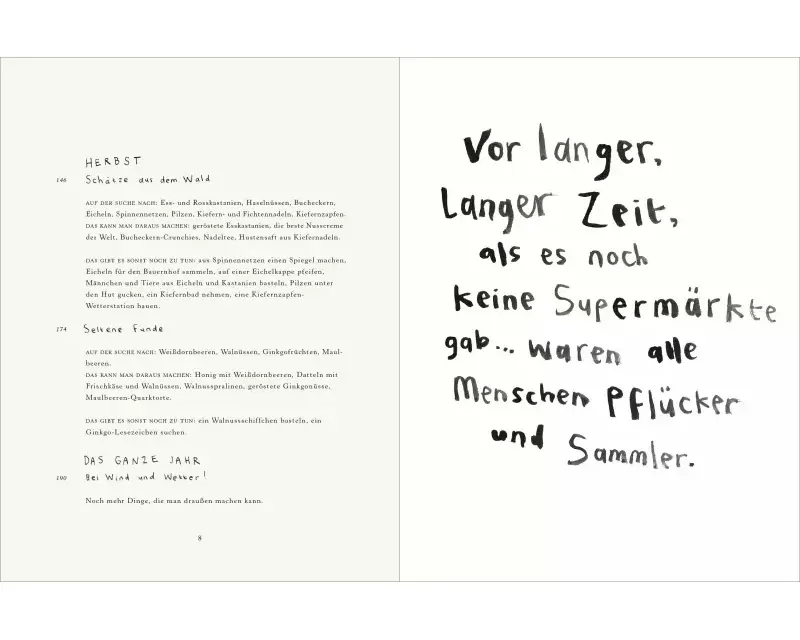 HERBST
146 Schätze aus dem Wald
AUF DER SUCHE NACH: Ess- und Rosskastanien, Haselnüssen, Bucheckern,
Eicheln, Spinnennetzen, Pilzen, Kiefern- und Fichtennadeln, Kiefernzapfen.
DAS KANN MAN DARAUS MACHEN: geröstete Esskastanien, die beste Nusscreme
der Welt, Bucheckern-Crunchies, Nadeltee, Hustensaft aus Kiefernadeln.
DAS GIBT ES SONST NOCH ZU TUN: aus Spinnennetzen einen Spiegel machen,
Eicheln für den Bauernhof sammeln, auf einer Eichelkappe pfeifen,
Männchen und Tiere aus Eicheln und Kastanien basteln, Pilzen unter
den Hut gucken, ein Kiefernbad nehmen, eine Kiefernzapfen-
Wetterstation bauen.
174 Seltene Funde
AUF DER SUCHE NACH: Weißdornbeeren, Walnüssen, Ginkgofrüchten, Maul-
beeren.
DAS KANN MAN DARAUS MACHEN: Honig mit Weißdornbeeren, Datteln mit
Frischkäse und Walnüssen, Walnusspralinen, geröstete Ginkgonüsse,
Maulbeeren-Quarktorte.
DAS GIBT ES SONST NOCH ZU TUN: ein Walnussschiffchen basteln, ein
Ginkgo-Lesezeichen suchen.
DAS GANZE JAHR
190 Bei Wind und Wetter!
Noch mehr Dinge, die man draußen machen kann.
8
Vor langer,
Langer Zeit,
als es noch
keine Supermärkte
gab... waren alle
Menschen Pflücker
und Sammler.